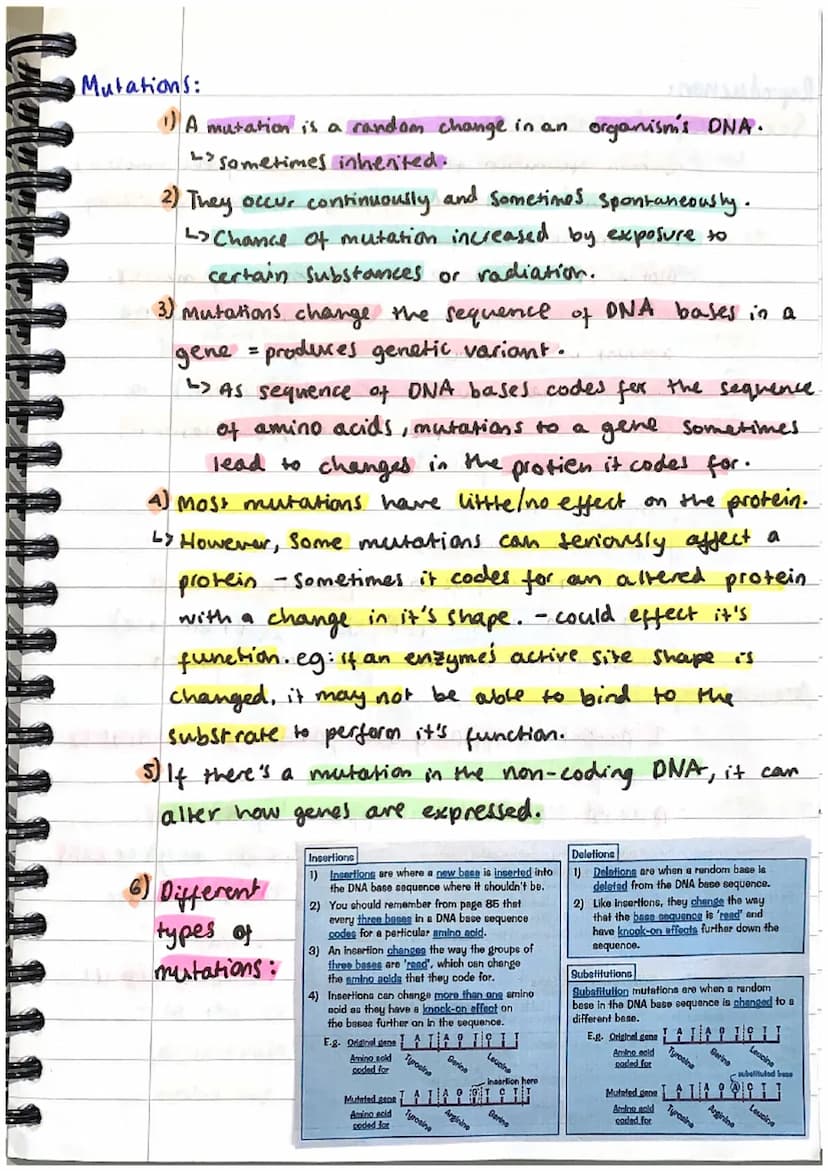 Mutations:
1) A mutation is a random change in an organism's DNA.
↳ sometimes inherited.
2) They occur continuously and sometimes spontaneously.
↳ Chance of mutation increased by exposure to
certain substances or radiation.
3) Mutations change the sequence of DNA bases in a
gene = produces genetic variant.
↳ As sequence of DNA bases codes for the sequence
of amino acids, mutations to a gene sometimes
lead to changes in the protien it codes for.
4) Most mutations have little/no effect on the protein.
↳ However, some mutations can seriously affect a
protein - sometimes it codes for an altered protein
with a change in it's shape. - could effect it's
function. eg: if an enzyme's active site shape is
changed, it may not be able to bind to the
substrate to perform it's function.
5) If there's a mutation in the non-coding DNA, it can
alter how genes are expressed.
6) Different
types of
mutations:
Insertions
1) Insertions are where a new base is inserted into
the DNA base sequence where it shouldn't be.
2) You should remember from page 85 that
every three bases in a DNA base sequence
codes for a particular amino acid.
3) An insertion changes the way the groups of
three bases are 'read', which can change
the amino acids that they code for.
4) Insertions can change more than one amino
acid as they have a knock-on effect on
the bases further on in the sequence.
E.g. Original gene T A T A G T C T T
Amino acid
coded for
Tyrosine Serine Leucine
insertion here
Mutated gene T A T A G G T C T T
Amino acid
coded for
Tyrosine Arginine Serine
Deletions
1) Deletions are when a random base is
deleted from the DNA base sequence.
2) Like insertions, they change the way
that the base sequence is 'read' and
have knock-on effects further down the
sequence.
Substitutions
Substitution mutations are when a random
base in the DNA base sequence is changed to a
different base.
E.g. Original gene T A T A G T C T T
Amino acid
coded for
Tyrosine Serine Leucine
substituted base
Mutated gene T A T A G A C T T
Amino acid
coded for
Tyrosine Arginine Leucine